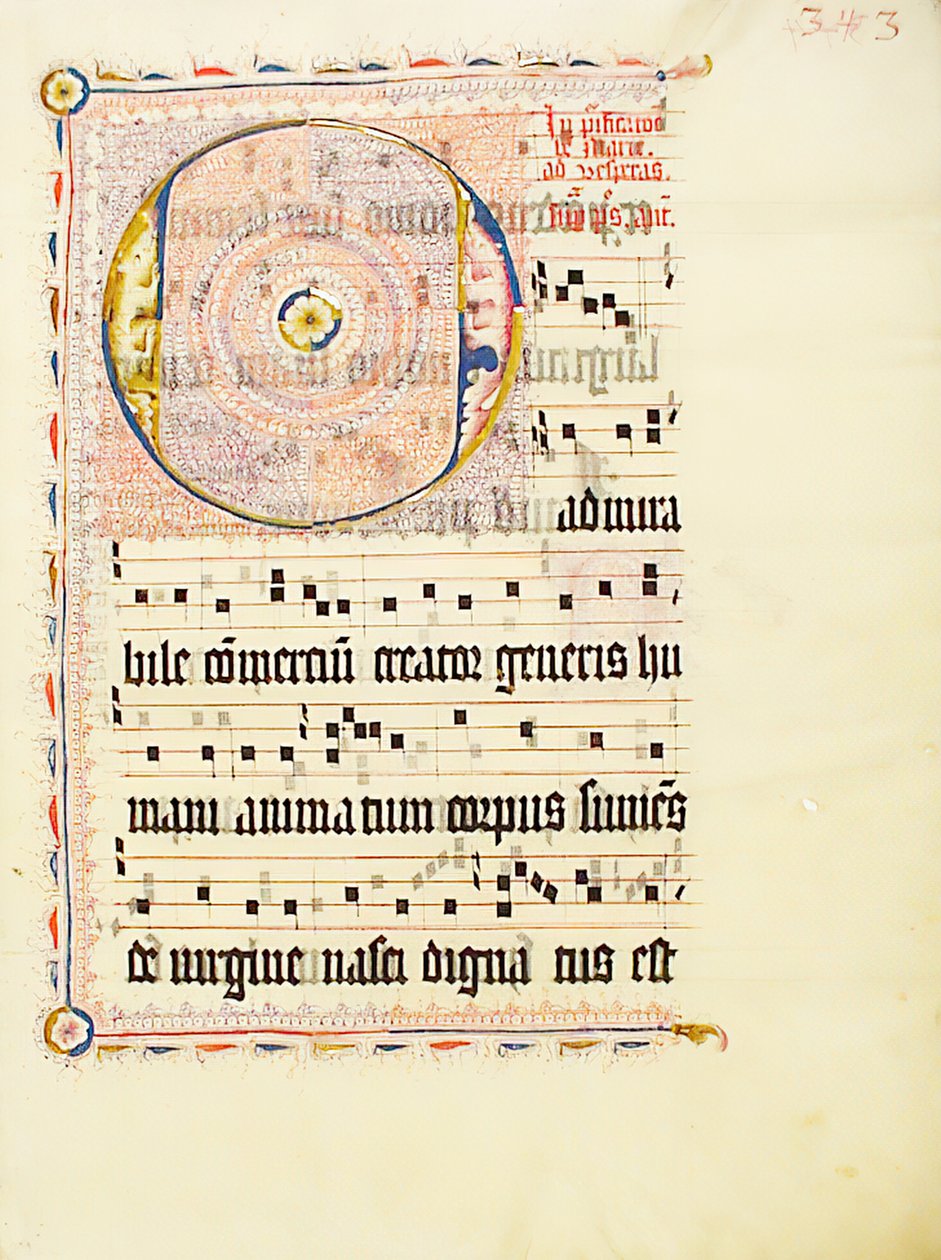 343
In p̄ificatiōe
be Marie.
ad vesperas.
sup̄ p̄s. Añt.
O admira
bile cōmerciū creator generis hu
mani animatum corpus sumēs
de uirgine nasci digna tus est